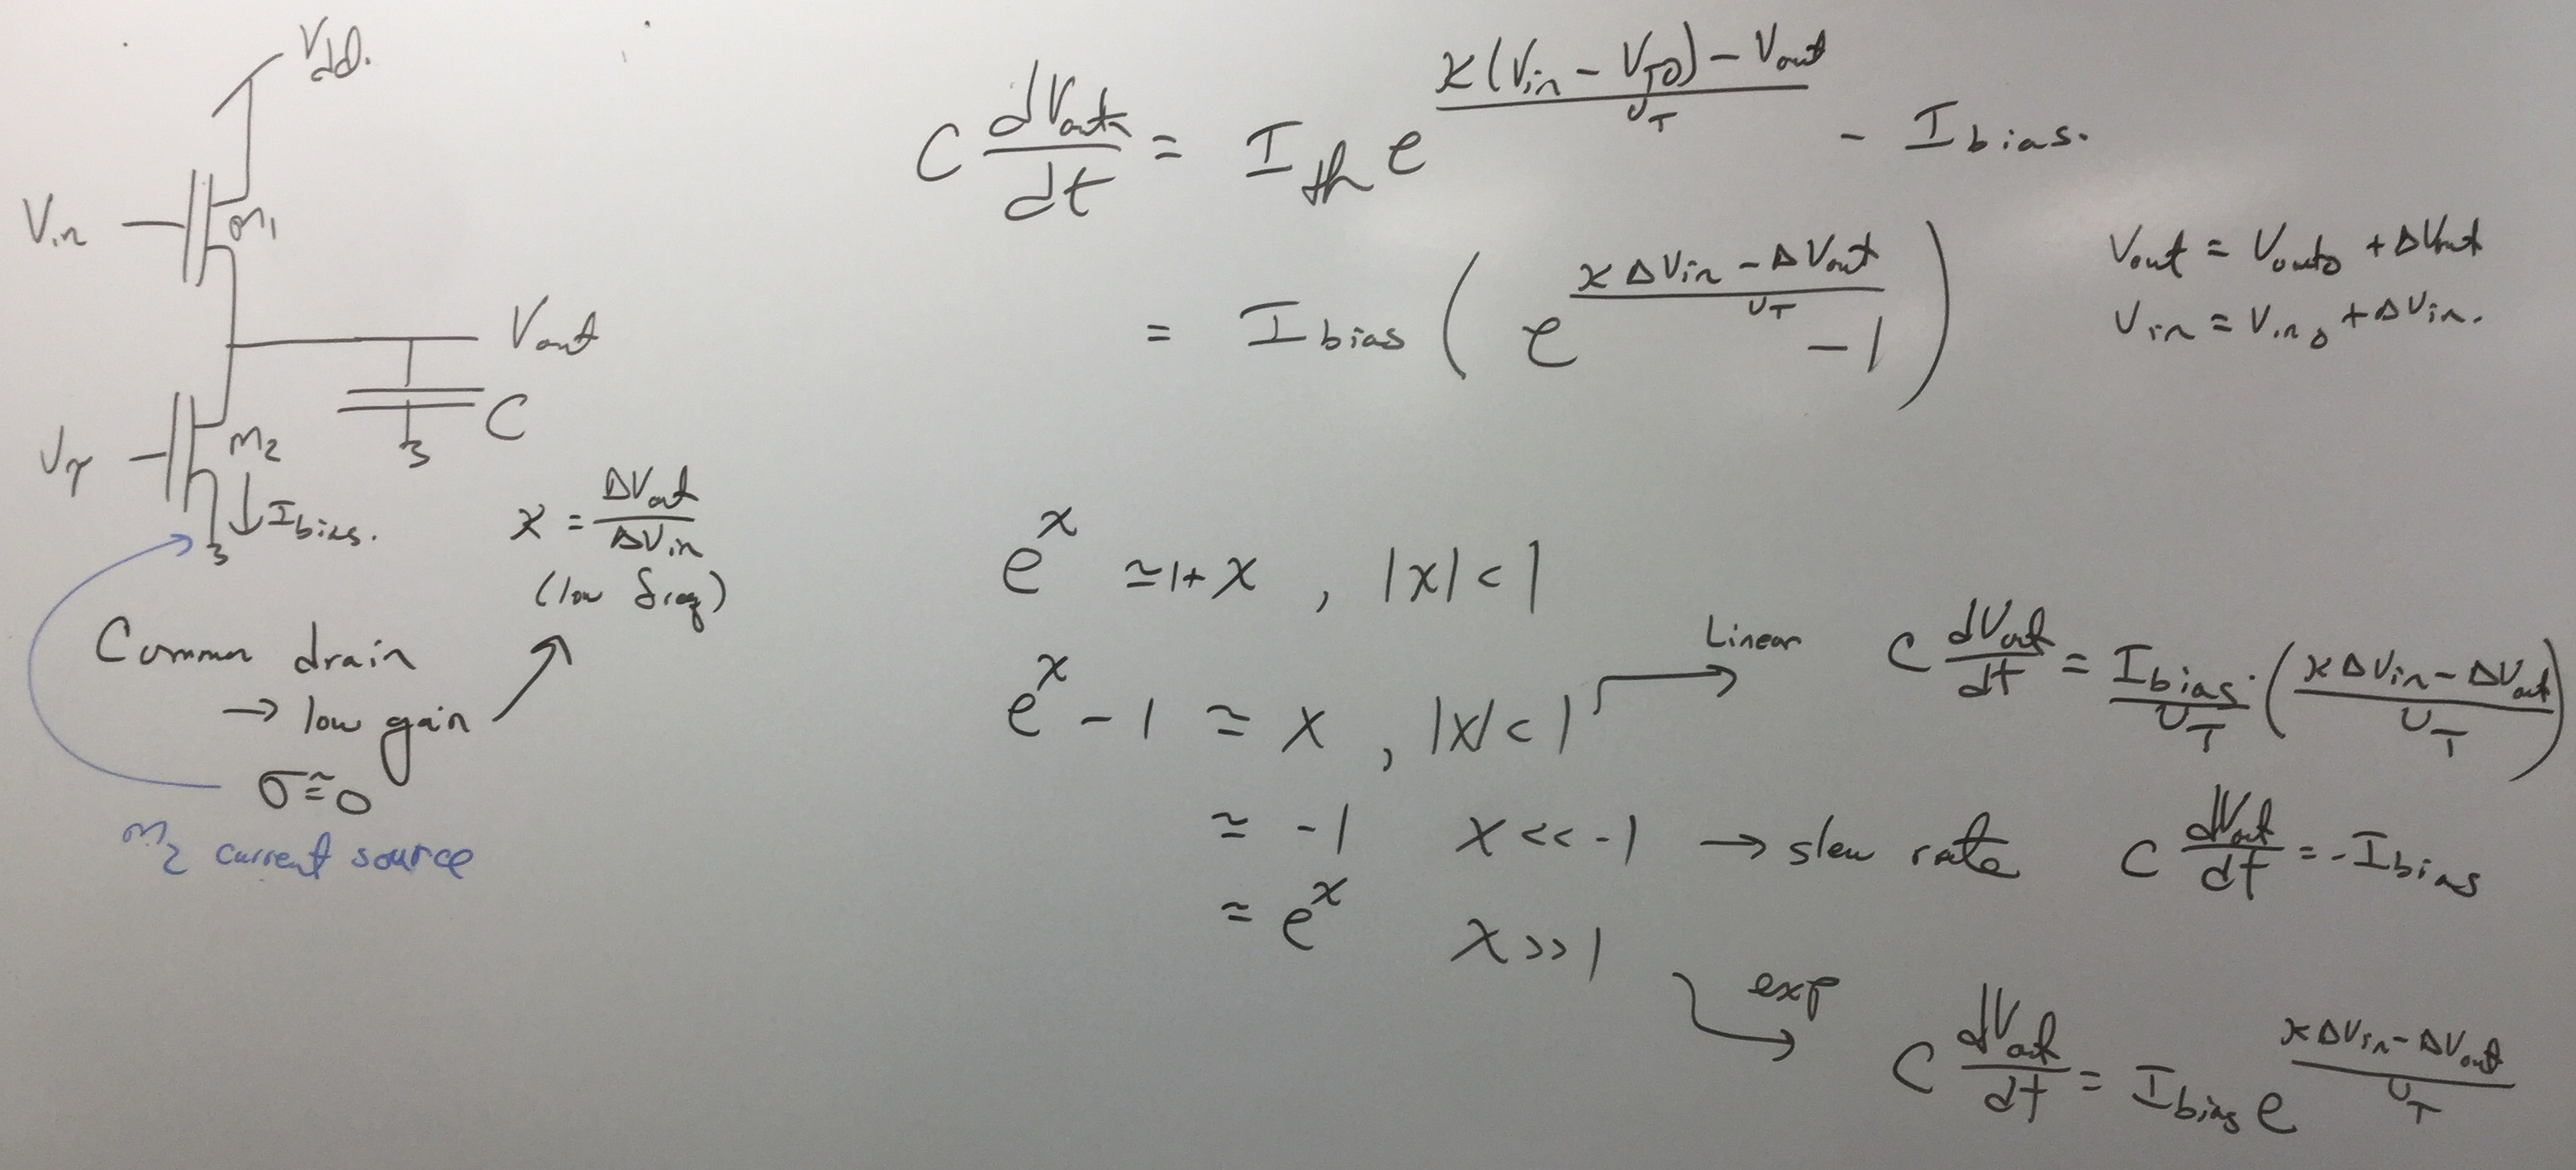 Vdd.
Vin
M1
Vout
C
Vτ
M2
Ibias.
κ = ΔVout / ΔVin
(low freq)
Common drain
→ low gain
σ ≅ 0
M2 current source
C dVout/dt = Ith e^((κ(Vin - VT0) - Vout)/UT) - Ibias.
= Ibias ( e^((κΔVin - ΔVout)/UT) - 1 )
Vout = Vout0 + ΔVout
Vin = Vin0 + ΔVin.
e^x ≃ 1 + x , |x| < 1
e^x - 1 ≃ x , |x| < 1
Linear
C dVout/dt = Ibias/UT · ( (κΔVin - ΔVout)/UT )
≃ -1 x << -1 → slew rate C dVout/dt = -Ibias
≃ e^x x >> 1
exp
C dVout/dt = Ibias e^((κΔVin - ΔVout)/UT)